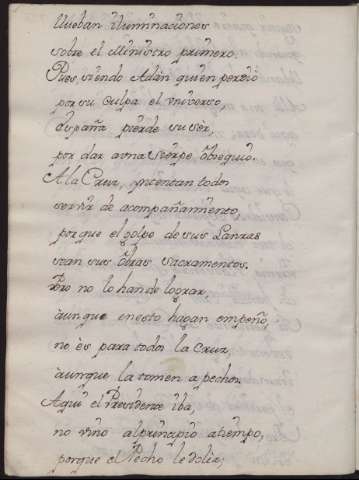 llueban iluminaciones
sobre el Ministro primero.
Pues, siendo Adàn quien perdiò
por su culpa el universo,
España pierde su sèr,
por dar a una Sierpe obsequio.
A la Cruz, yntentan todos
servir de acompañamiento,
porque el golpe de sus Lanzas
sean sus obras sacramentos.
Pero no lo han de lograr,
aunque en esto hagan empeño,
no ès para todos la Cruz,
aunque la tomen a pechos.
Aqui el Presidente iba,
no vino al principio a tiempo,
porque el Pecho le dolia;